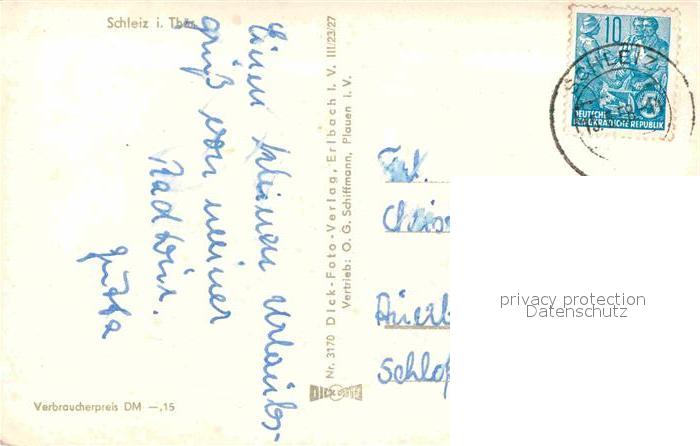 Schleiz i. Thür.
Einen kleinen Urlaubs-
gruß von meiner
Radtour.
Jutta
Nr. 3170 Dick-Foto-Verlag, Erlbach i. V. III/23/27
Vertrieb: O. G. Schiffmann, Plauen i. V.
DICK
10
DEUTSCHE
DEMOKRATISCHE REPUBLIK
SCHLEIZ
Frl.
Chris
Auerb
Schloß
privacy protection
Datenschutz
Verbraucherpreis DM —,15